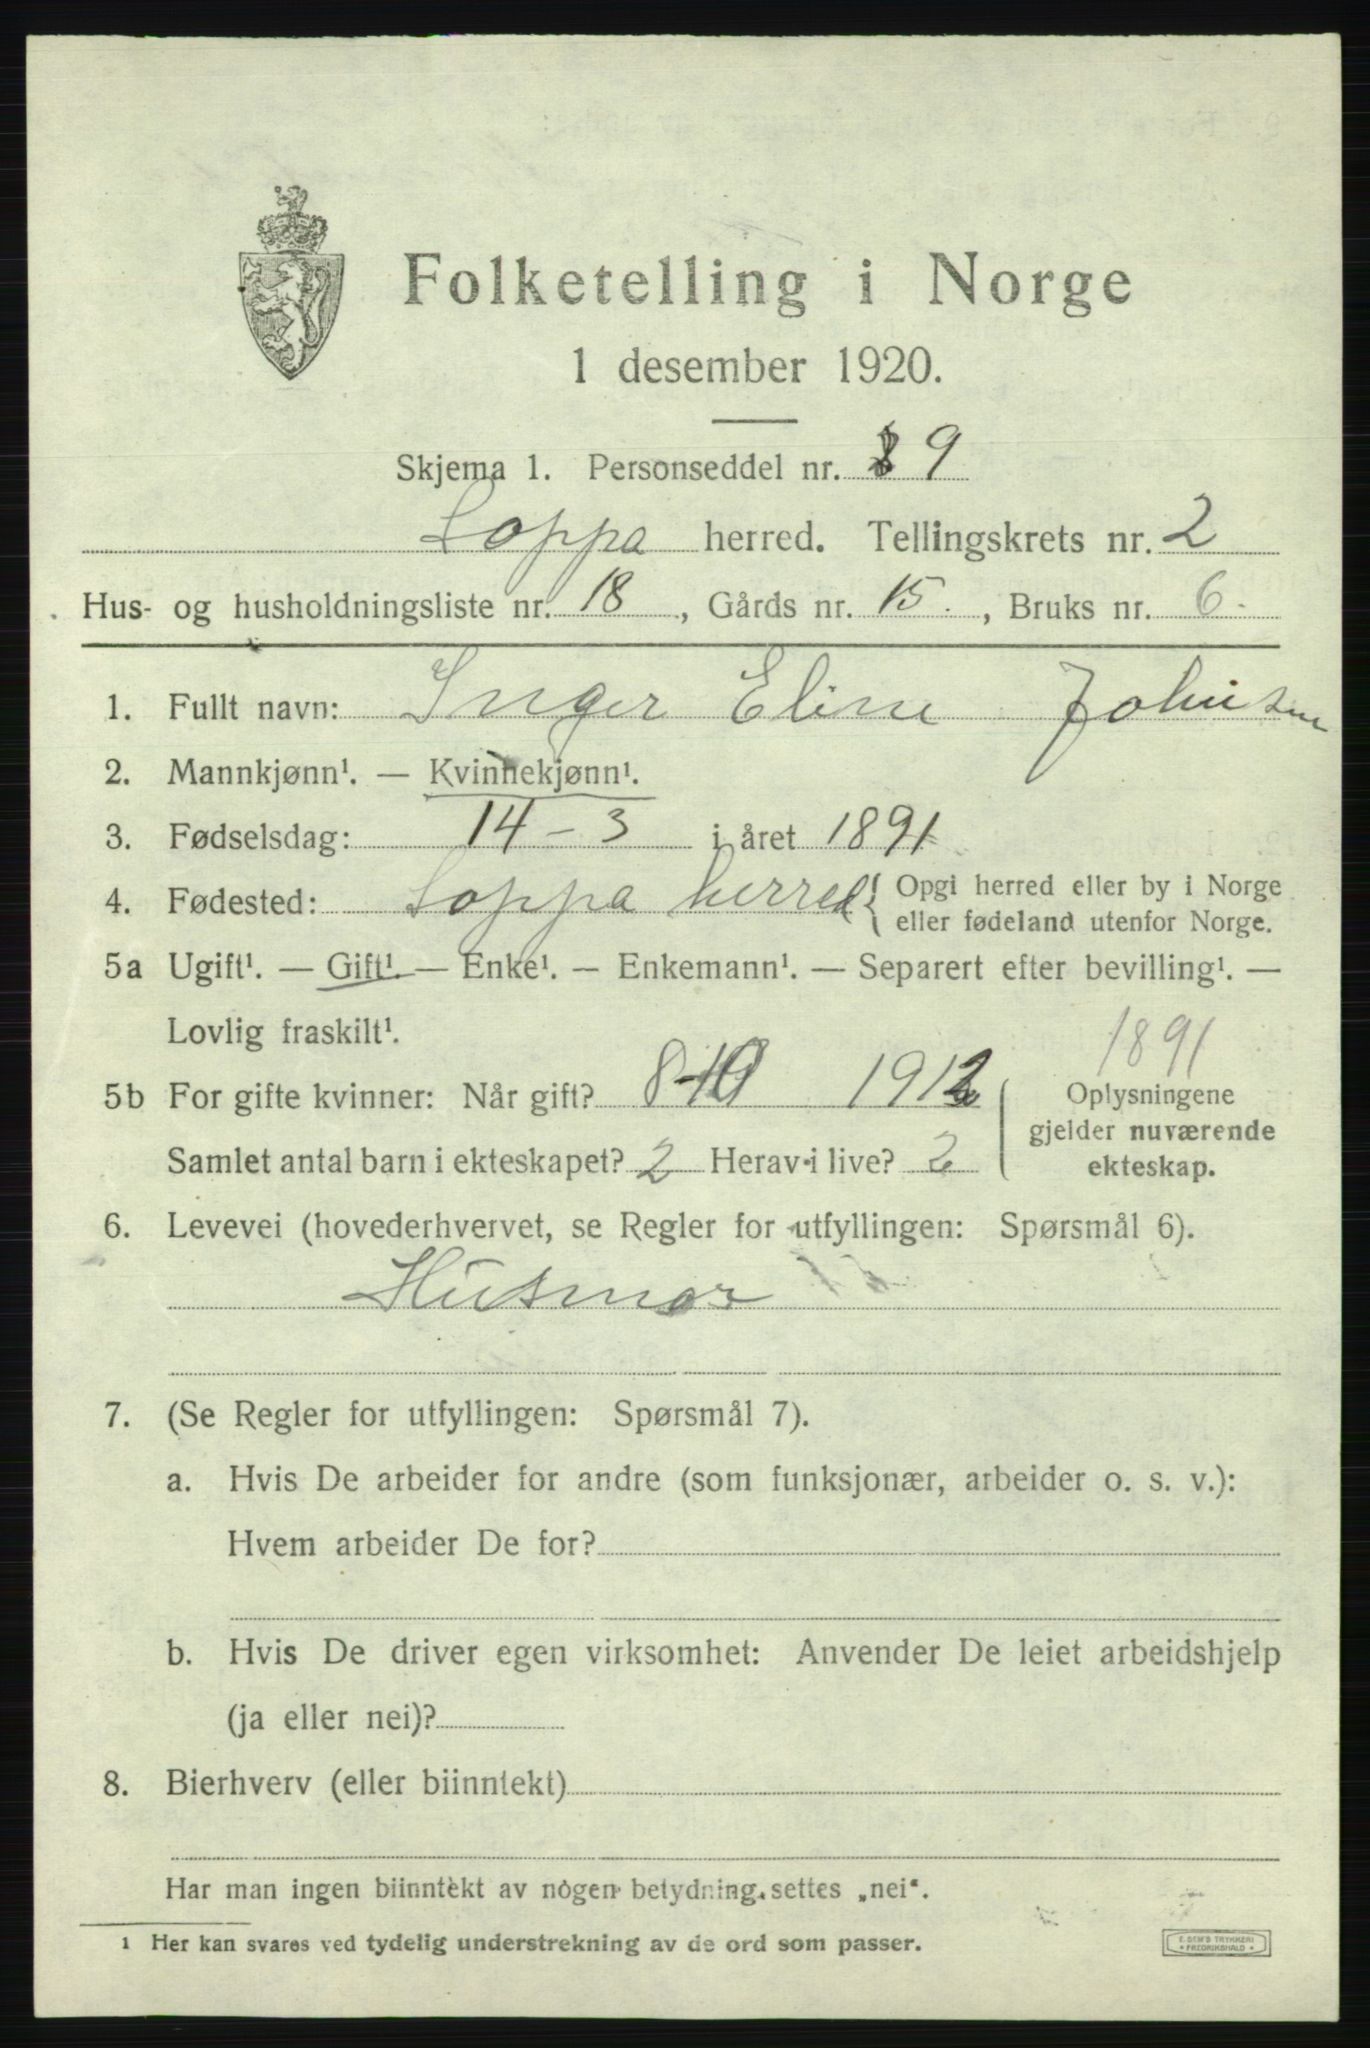 Folketelling i Norge
1 desember 1920.
Skjema 1. Personseddel nr. 9
Loppa herred. Tellingskrets nr. 2
Hus- og husholdningsliste nr. 18, Gårds nr. 15., Bruks nr. 6.
1. Fullt navn: Inger Eline Johnsen
2. Mannkjønn¹. — Kvinnekjønn¹.
3. Fødselsdag: 14 - 3 i året 1891
4. Fødested: Loppa herred { Opgi herred eller by i Norge
eller fødeland utenfor Norge.
5a Ugift¹. — Gift¹. — Enke¹. — Enkemann¹. — Separert efter bevilling¹. —
Lovlig fraskilt¹.
1891
5b For gifte kvinner: Når gift? 8-10 1912
Samlet antal barn i ekteskapet? 2 Herav i live? 2
Oplysningene
gjelder nuværende
ekteskap.
6. Levevei (hovederhvervet, se Regler for utfyllingen: Spørsmål 6).
Husmor
7. (Se Regler for utfyllingen: Spørsmål 7).
a. Hvis De arbeider for andre (som funksjonær, arbeider o. s. v.):
Hvem arbeider De for?
b. Hvis De driver egen virksomhet: Anvender De leiet arbeidshjelp
(ja eller nei)?
8. Bierhverv (eller biinntekt)
Har man ingen biinntekt av nogen betydning, settes „nei“.
1 Her kan svares ved tydelig understrekning av de ord som passer.
E. SEM'S TRYKKERI
• FREDRIKSHALD •